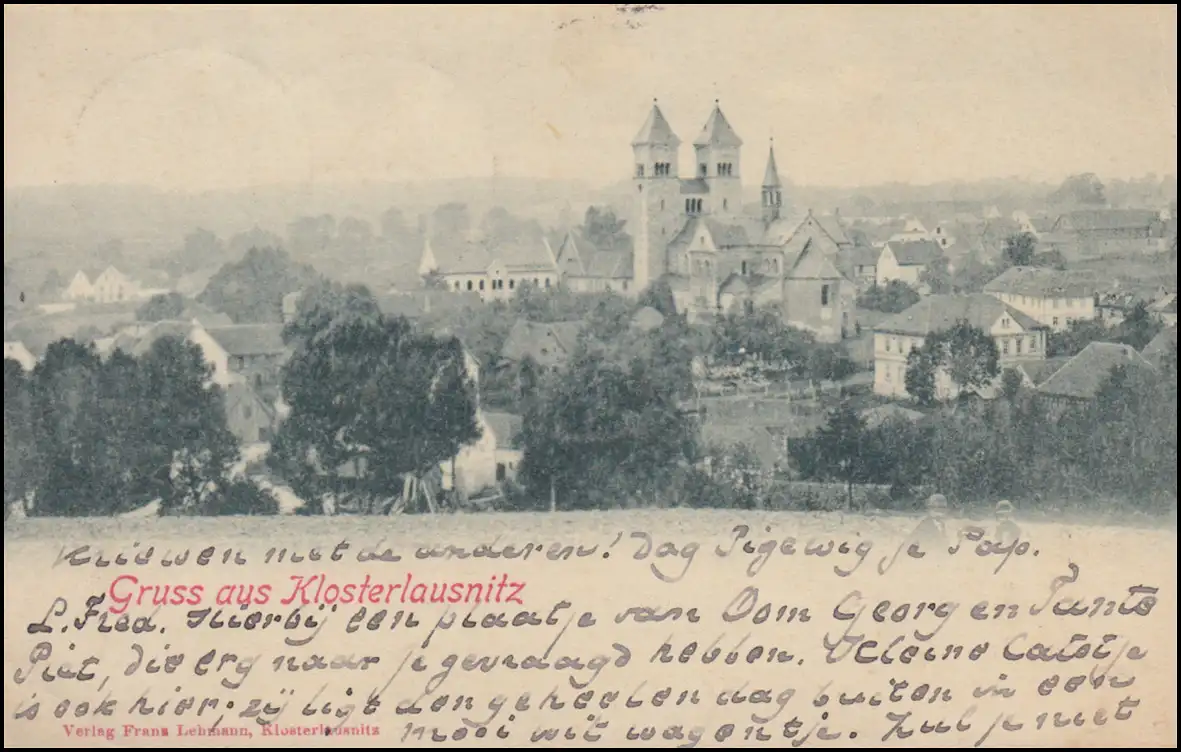 met de anderen! Dag Pigewig je Pap.
Gruss aus Klosterlausnitz
L. Fred. Hierbij een plaatje van Oom Georg en Tante
Piet, die erg naar je gevraagd hebben. Kleine Catotje
is ook hier; zij ligt den geheelen dag buiten in een
Verlag Franz Lehmann, Klosterlausnitz
mooi wit wagentje. Zul je niet